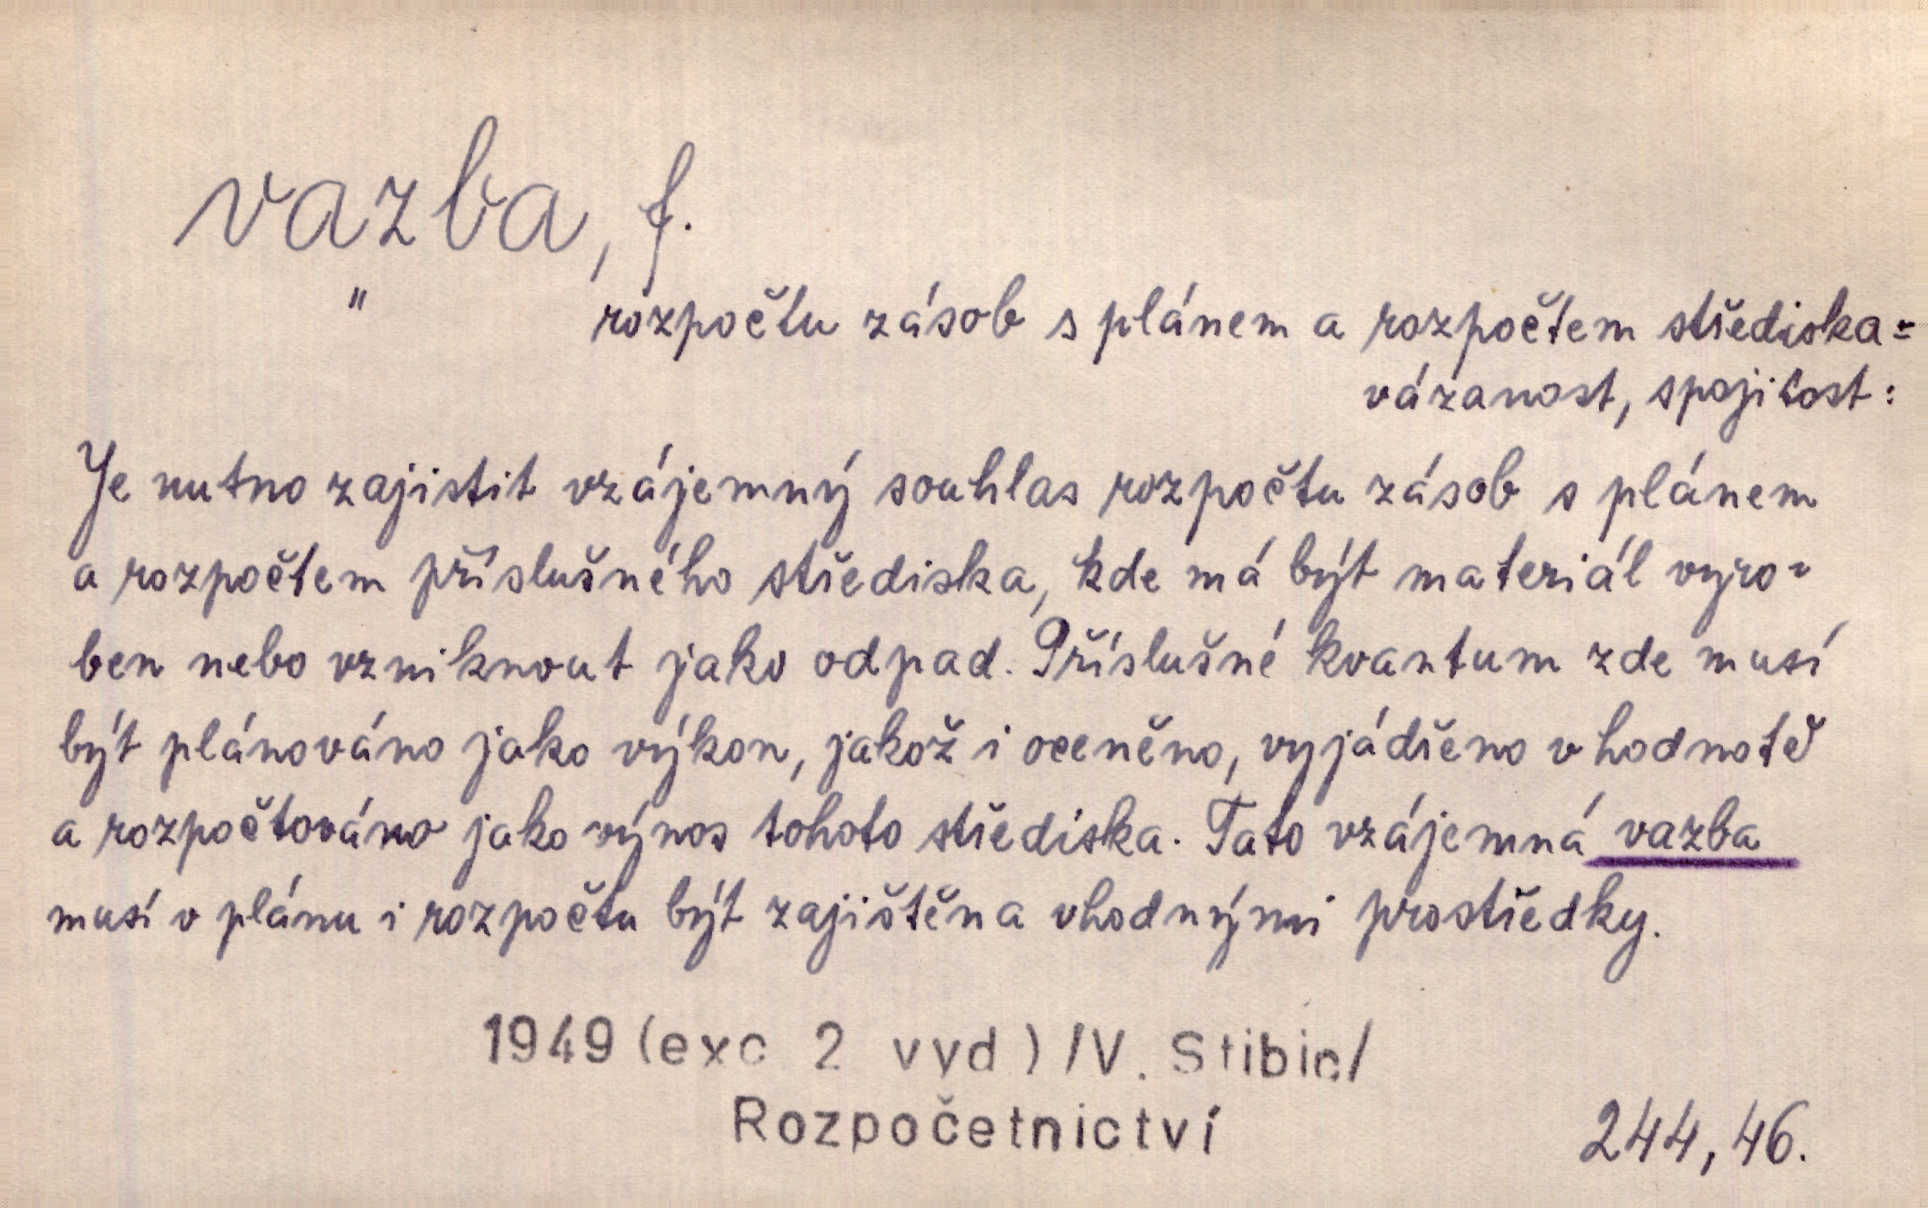 vazba, f.
" rozpočtu zásob s plánem a rozpočtem střediska =
vázanost, spojitost:
Je nutno zajistit vzájemný souhlas rozpočtu zásob s plánem
a rozpočtem příslušného střediska, kde má být materiál vyro-
ben nebo vzniknout jako odpad. Příslušné kvantum zde musí
být plánováno jako výkon, jakož i oceněno, vyjádřeno v hodnotě
a rozpočtováno jako výnos tohoto střediska. Tato vzájemná vazba
musí v plánu i rozpočtu být zajištěna vhodnými prostředky.
1949 (exc 2 vyd) /V. Stibic/
Rozpočetnictví
244,46.